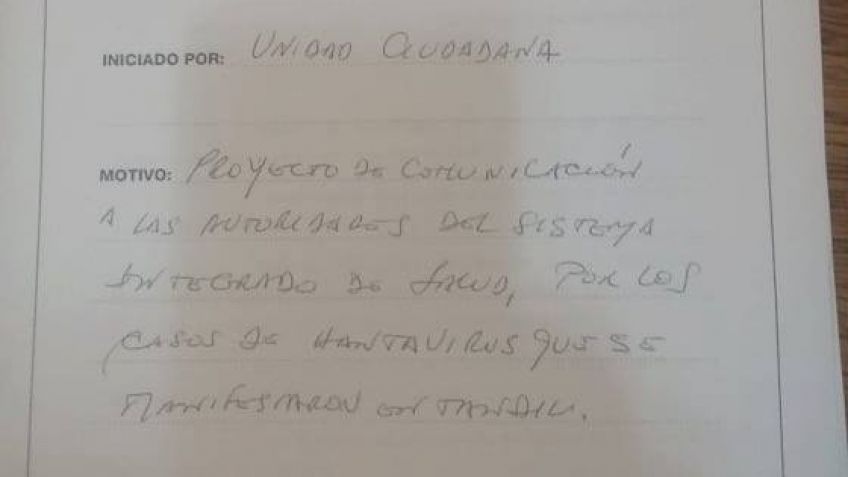 INICIADO POR: UNIDAD CIUDADANA
MOTIVO: PROYECTO DE COMUNICACIÓN
A LAS AUTORIDADES DEL SISTEMA
INTEGRADO DE SALUD, POR LOS
CASOS DE HANTAVIRUS QUE SE
MANIFESTARON EN TANDIL.